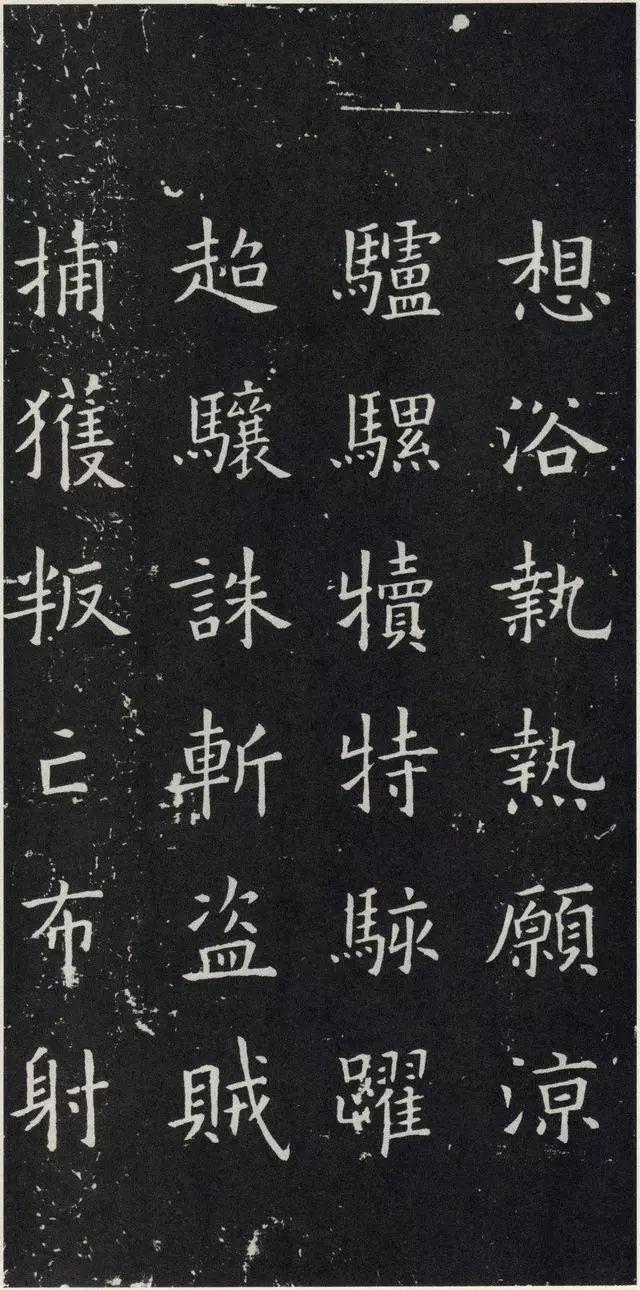 想浴執熱願涼
驢騾犢特駭躍
超驤誅斬盜賊
捕獲叛亡布射